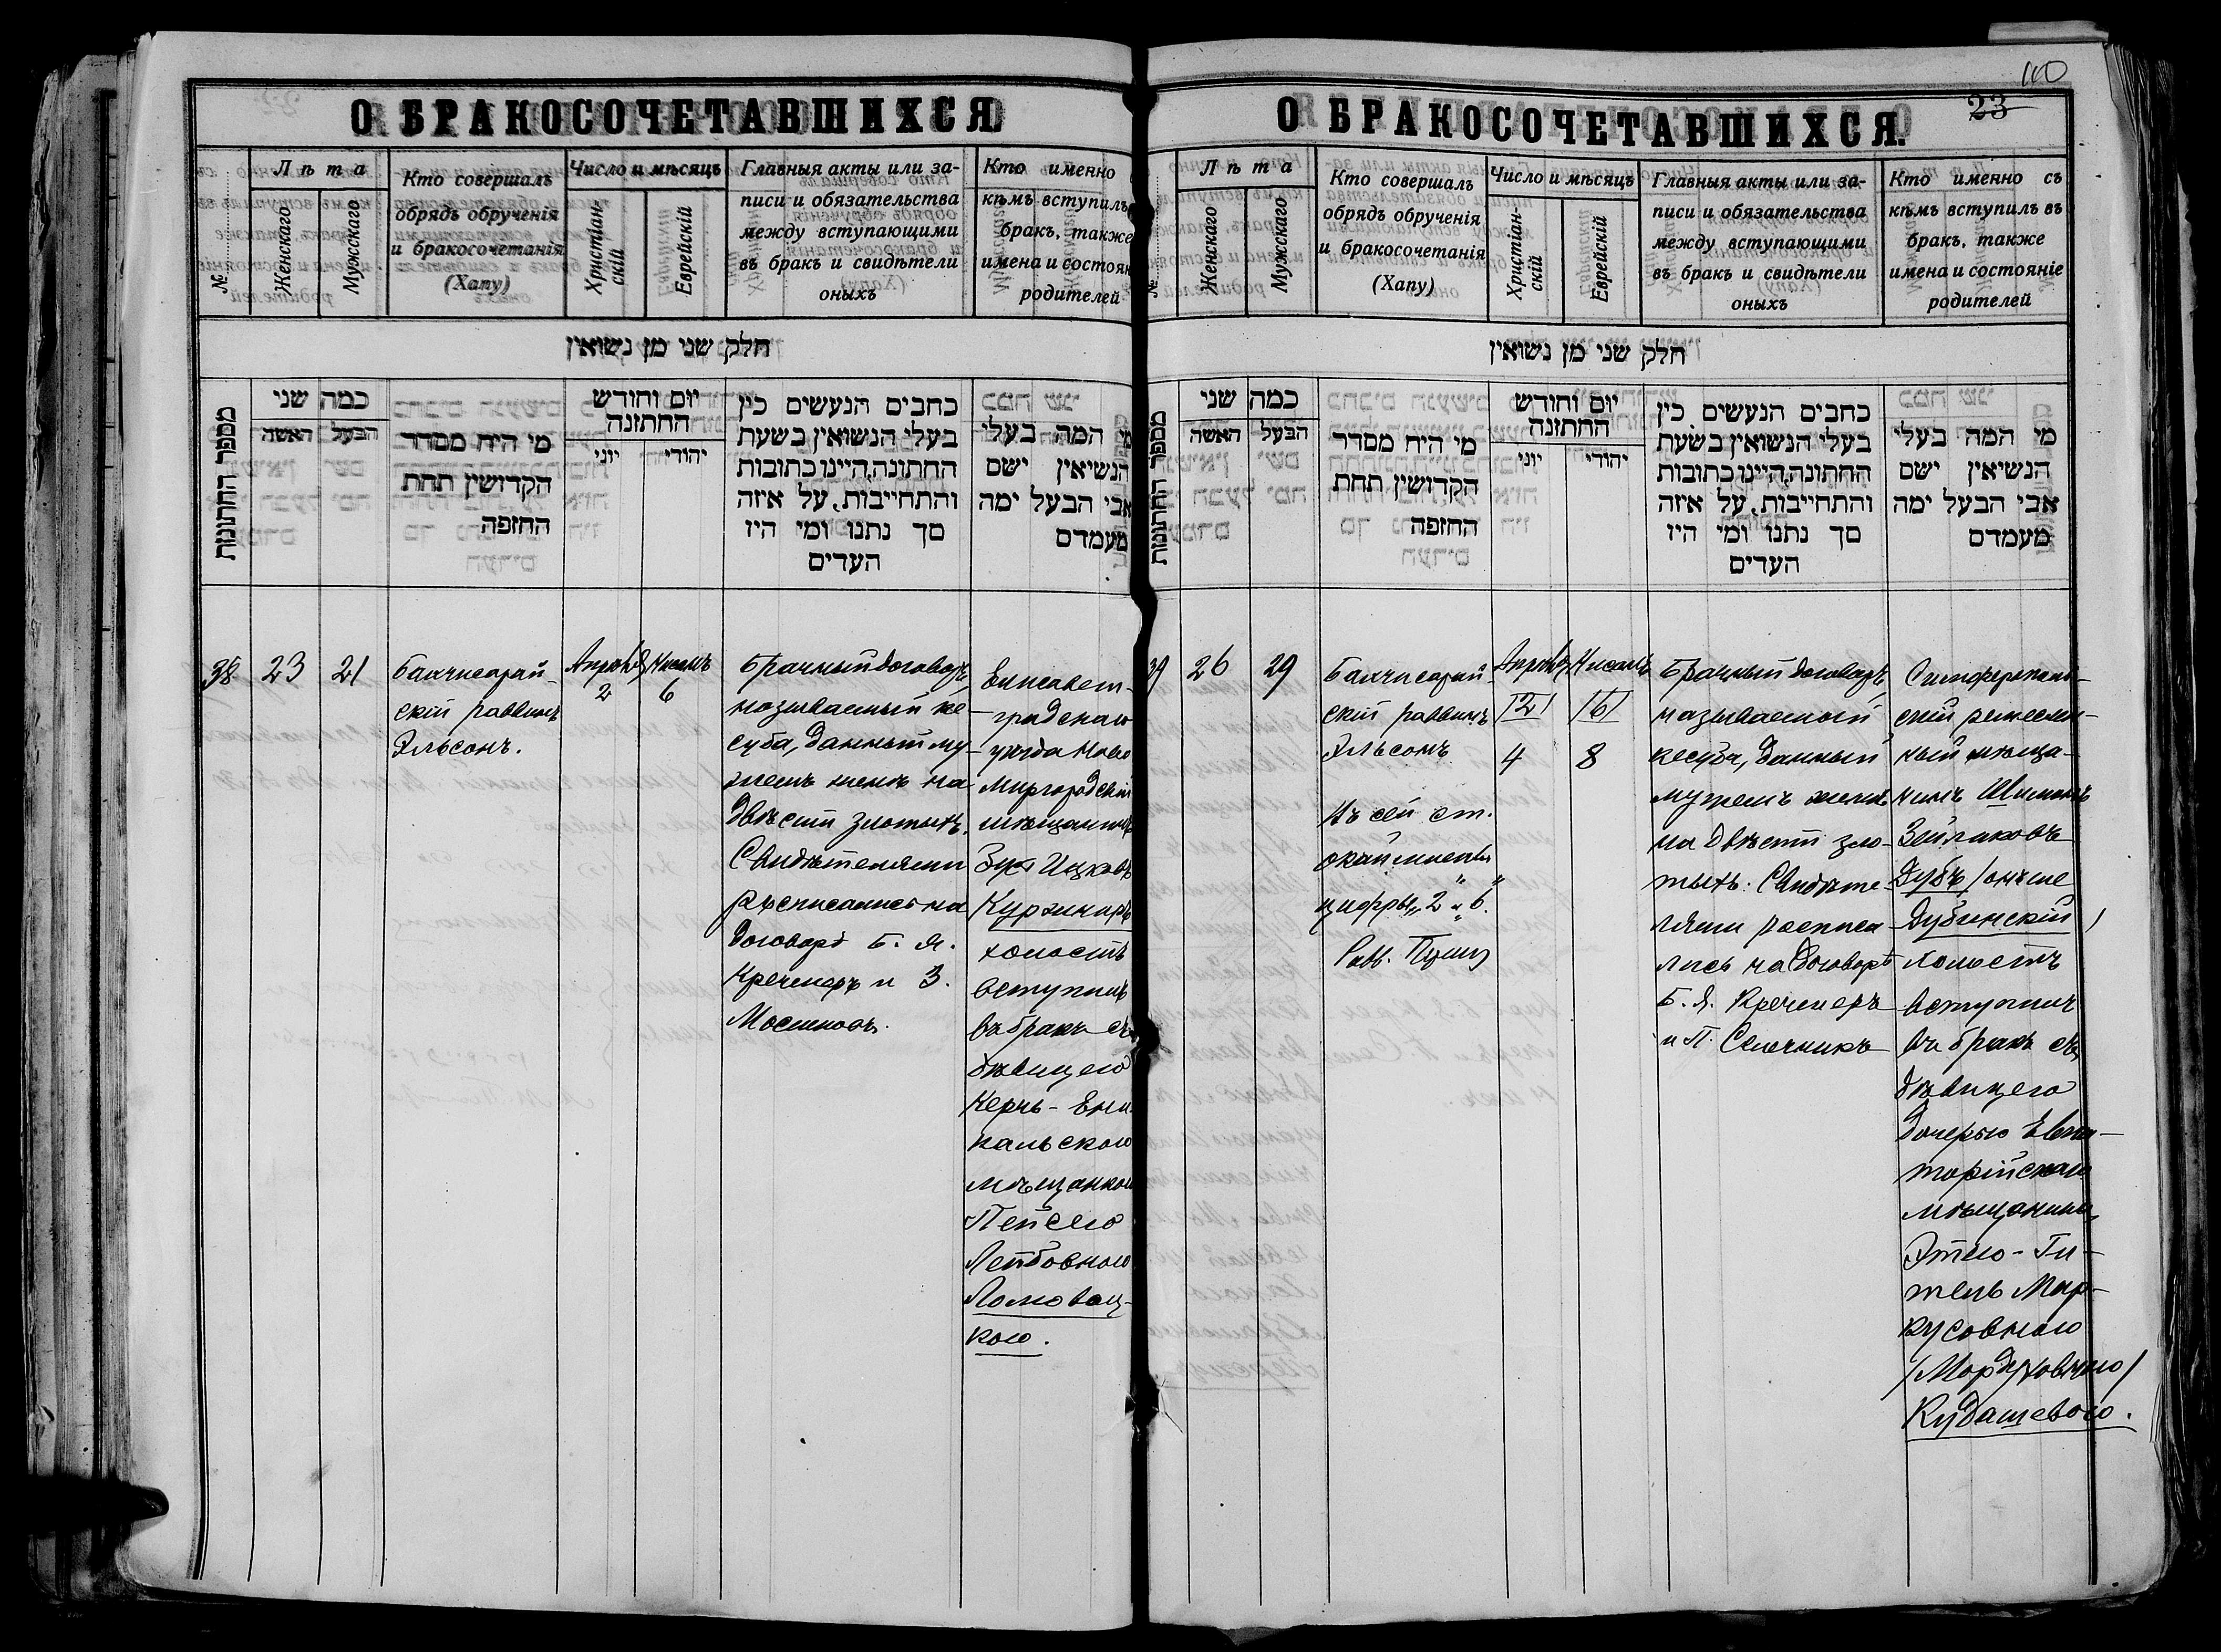 О БРАКОСОЧЕТАВШИХСЯ.
№
Лѣта
Женскаго
Мужскаго
Кто совершалъ
обрядъ обрученія
и бракосочетанія
(Хапу)
Число и мѣсяцъ
Христіан-
скій
Еврейскій
Главныя акты или за-
писи и обязательства
между вступающими
въ бракъ и свидѣтели
оныхъ
Кто именно
кѣмъ вступилъ
бракъ, также
имена и состоян
родителей
חלק שני מן נשואין
מספר החתונות
כמה שני
האשה
הבעל
מי היה מסדר
הקדושין תחת
החופה
יום וחודש
החתונה
יוני
יהודי
כתבים הנעשים בין
בעלי הנשואין בשעת
החתונה,היינו כתובות
והתחייבות, על איזה
סך נתנו ומי היו
העדים
מי המה בעלי
הנשיאין ישם
אבי הבעל ימה
מעמדם
38
23
21
Бахчисарай-
скій раввинъ
Эльсонъ.
Апрѣль
2
Нисанъ
6
Брачный договоръ,
называемый ке
суба, данный му-
жемъ женѣ на
двѣсти злотыхъ.
Свидѣтелями
росписались на
договорѣ Б. Я.
Кречмеръ и З.
Елисавет-
градскаго
уѣзда Ново
миргородскій
мѣщанинъ
Зусъ Ицковъ
холостъ
вступилъ
въ бракъ съ
дѣвицею
Керчь-Ени
кальскою
мѣщанкою
Пейсею
Лейбовною
Ломовац-
кою.
О БРАКОСОЧЕТАВШИХСЯ.
110
23
№
Лѣта
Женскаго
Мужскаго
Кто совершалъ
обрядъ обрученія
и бракосочетанія
(Хапу)
Число и мѣсяцъ
Христіан-
скій
Еврейскій
Главныя акты или за-
писи и обязательства
между вступающими
въ бракъ и свидѣтели
оныхъ
Кто именно съ
кѣмъ вступилъ въ
бракъ, также
имена и состояніе
родителей
חלק שני מן נשואין
מספר החתונות
כמה שני
האשה
הבעל
מי היה מסדר
הקדושין תחת
החופה
יום וחודש
החתונה
יוני
יהודי
כתבים הנעשים בין
בעלי הנשואין בשעת
החתונה,היינו כתובות
והתחייבות, על איזה
סך נתנו ומי היו
העדים
מי המה בעלי
הנשיאין ישם
אבי הבעל ימה
מעמדם
39
26
29
Бахчисарай-
скій раввинъ
Эльсонъ
Въ сей ст.
окаймлены
цифры „2" и „6".
Равв.
Апрѣль
/2/
4
Нисанъ
/6/
8
Брачный договоръ,
называемый
кесуба, данный
мужемъ женѣ
на двѣсти зло-
тыхъ. Свидѣте-
лями росписа
лись на договорѣ
Б. Я. Кречмеръ
и П. Селечникъ
Симферополь-
скій ремеслен-
ный мѣща-
нинъ Шимонъ
Зейликовъ
Дубъ /онъ же
Дубинскій/
холостъ
вступилъ
въ бракъ съ
дѣвицею
дочерью Евпа-
торійскаго
мѣщанина
Этею-Ги-
тель Мар-
кусовною
/Мордуховною/
Кудашевою.